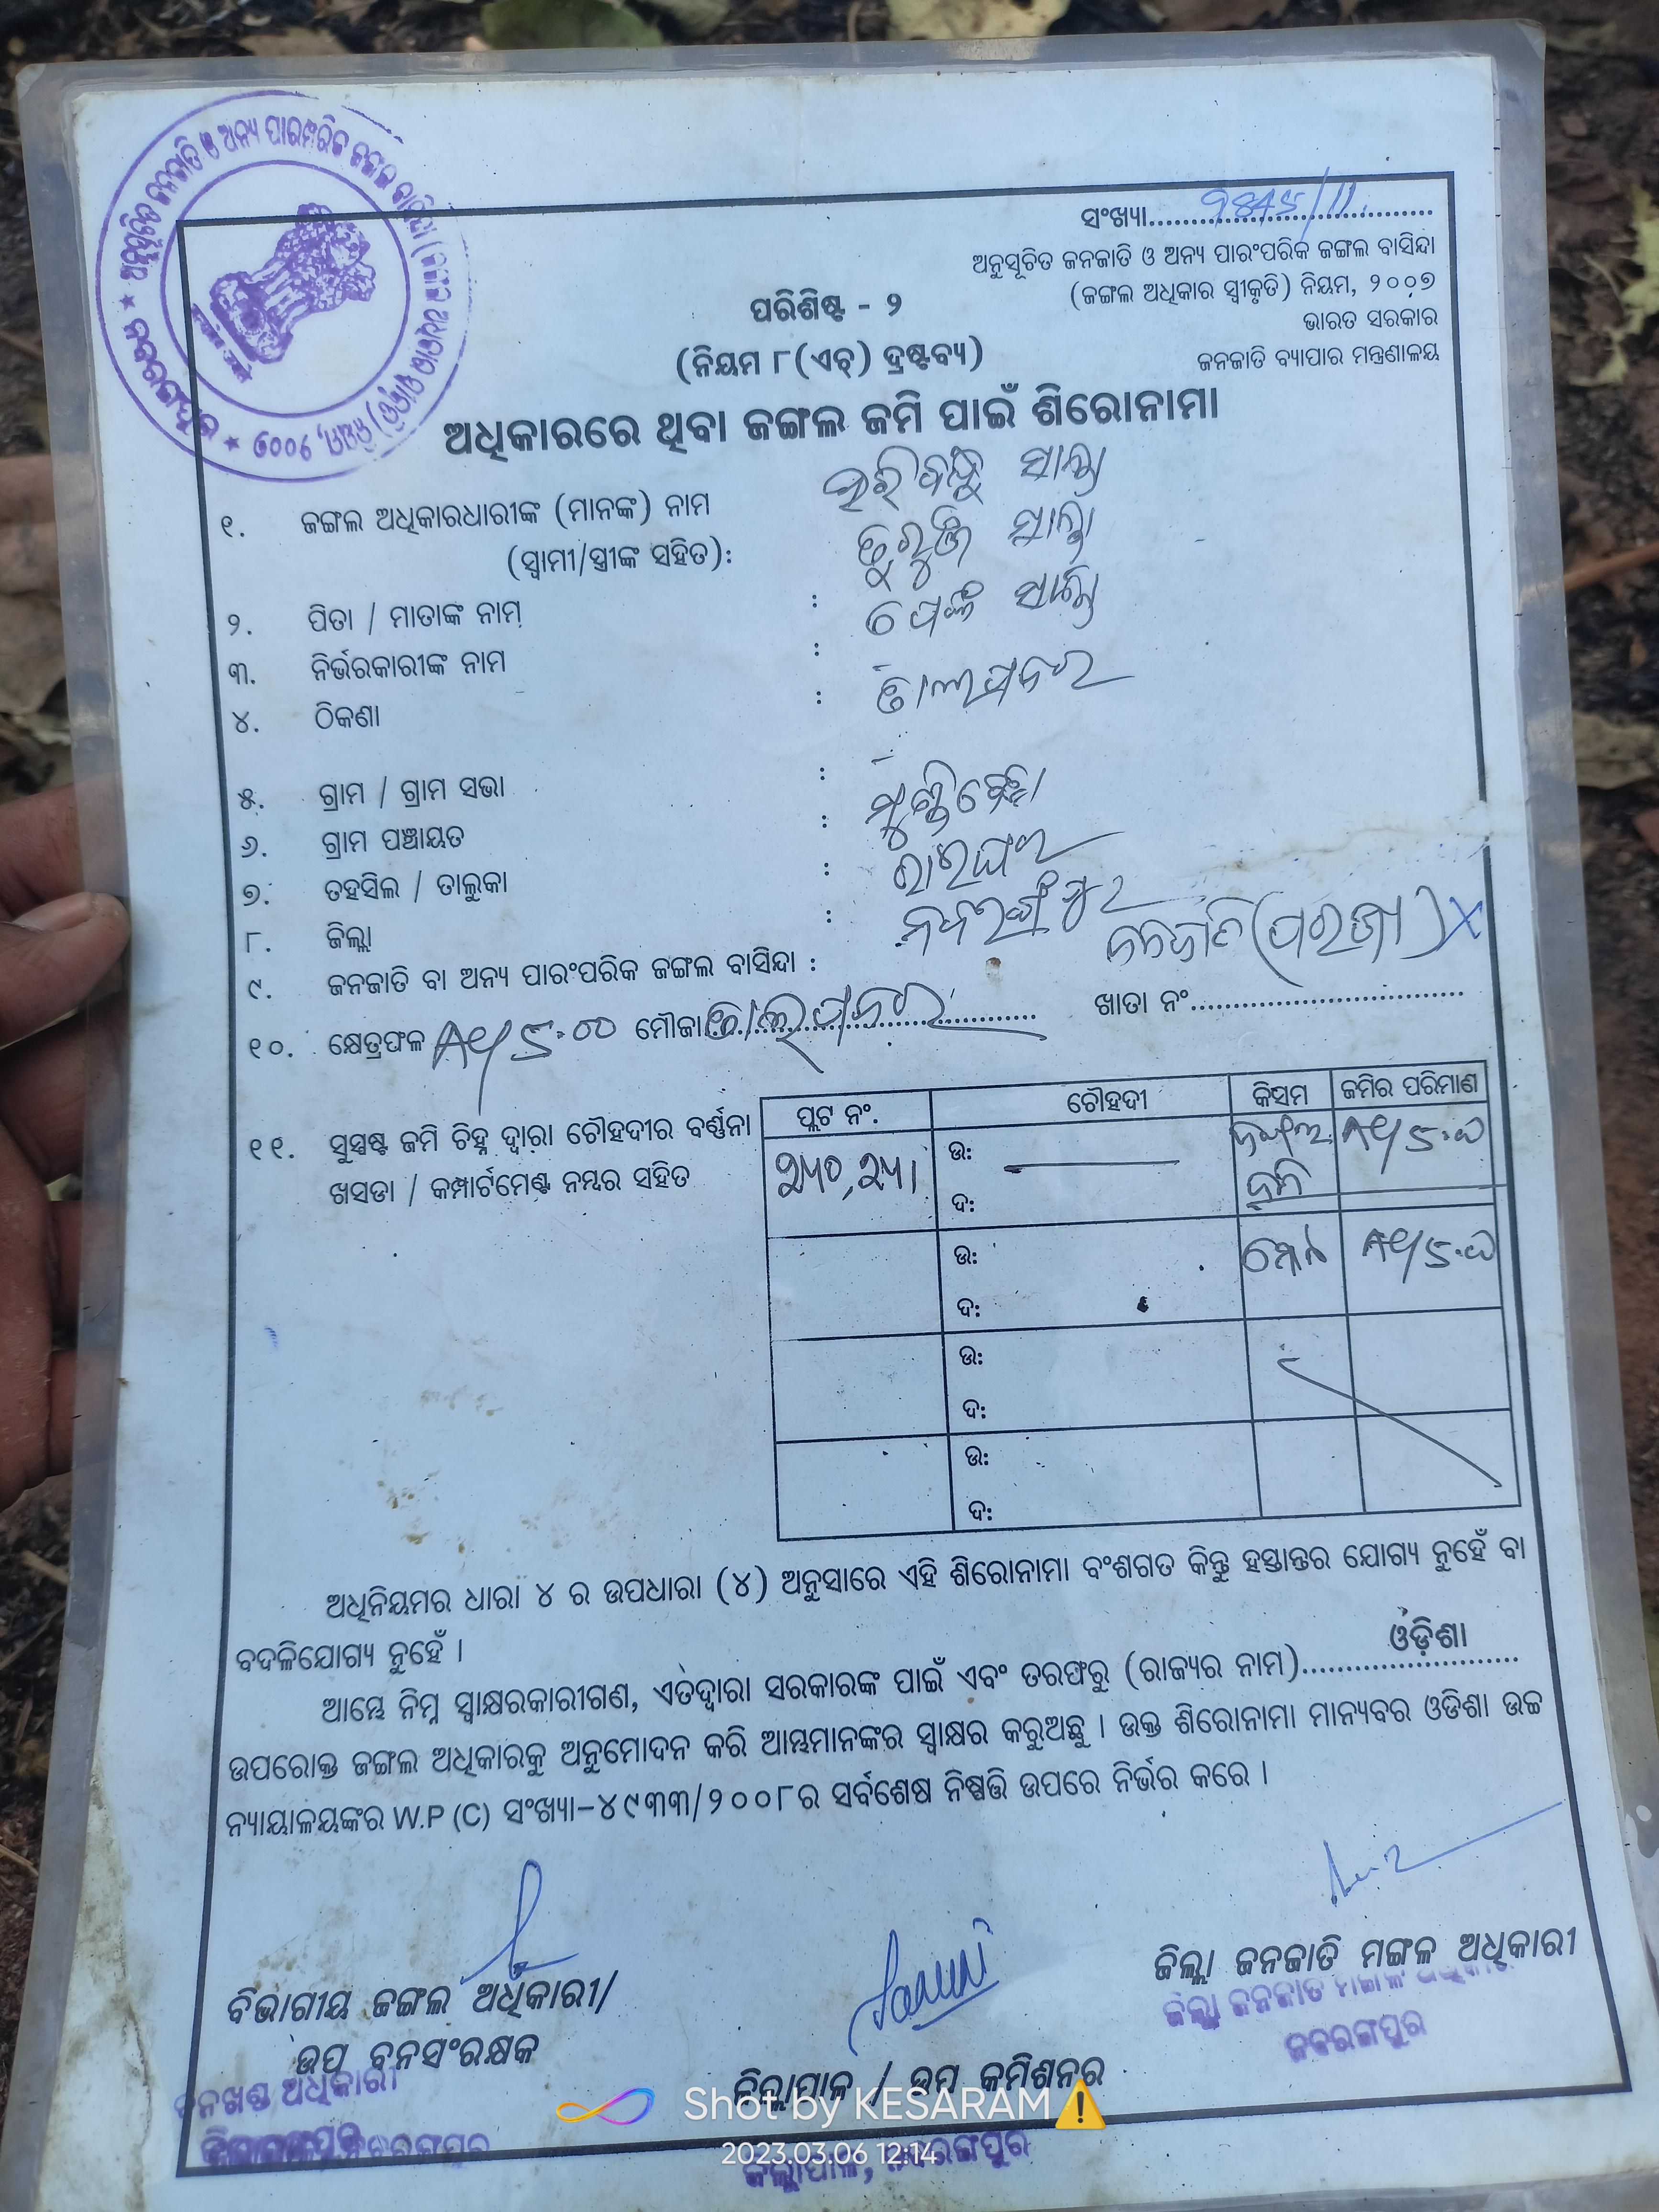 ସଂଖ୍ୟା
ଅନୁସୂଚିତ ଜନଜାତି ଓ ଅନ୍ୟ ପାରଂପରିକ ଜଙ୍ଗଲ ବାସିନ୍ଦା
(ଜଙ୍ଗଲ ଅଧିକାର ସ୍ୱୀକୃତି) ନିୟମ, ୨୦୦୭
ଭାରତ ସରକାର
ଜନଜାତି ବ୍ୟାପାର ମନ୍ତ୍ରଣାଳୟ
ପରିଶିଷ୍ଟ - ୨
(ନିୟମ ୮(ଏଚ୍) ଦ୍ରଷ୍ଟବ୍ୟ)
ଅଧିକାରରେ ଥିବା ଜଙ୍ଗଲ ଜମି ପାଇଁ ଶିରୋନାମା
୧. ଜଙ୍ଗଲ ଅଧିକାରଧାରୀଙ୍କ (ମାନଙ୍କ) ନାମ ହରିବନ୍ଧୁ ସାନ୍ତା
(ସ୍ୱାମୀ/ସ୍ତ୍ରୀଙ୍କ ସହିତ): ସାନ୍ତା
୨. ପିତା / ମାତାଙ୍କ ନାମ : ସାନ୍ତା
୩. ନିର୍ଭରକାରୀଙ୍କ ନାମ : -
୪. ଠିକଣା :
୫. ଗ୍ରାମ / ଗ୍ରାମ ସଭା :
୬. ଗ୍ରାମ ପଞ୍ଚାୟତ :
୭. ତହସିଲ / ତାଲୁକା : ରାଇଘର
୮. ଜିଲ୍ଲା : ନବରଙ୍ଗପୁର
୯. ଜନଜାତି ବା ଅନ୍ୟ ପାରଂପରିକ ଜଙ୍ଗଲ ବାସିନ୍ଦା : ଜନଜାତି (ପରଜା)
୧୦. କ୍ଷେତ୍ରଫଳ ମୌଜା ଖାତା ନଂ
୧୧. ସୁସ୍ପଷ୍ଟ ଜମି ଚିହ୍ନ ଦ୍ୱାରା ଚୌହଦୀର ବର୍ଣ୍ଣନା
ଖସଡା / କମ୍ପାର୍ଟମେଣ୍ଟ ନମ୍ବର ସହିତ
ପ୍ଲଟ ନଂ. ଚୌହଦୀ କିସମ ଜମିର ପରିମାଣ
ଉ: ଜଙ୍ଗଲ
ଦ: ଜମି
ଉ:
ଦ:
ଉ:
ଦ:
ଉ:
ଦ:
ଅଧିନିୟମର ଧାରା ୪ ର ଉପଧାରା (୪) ଅନୁସାରେ ଏହି ଶିରୋନାମା ବଂଶଗତ କିନ୍ତୁ ହସ୍ତାନ୍ତର ଯୋଗ୍ୟ ନୁହେଁ ବା
ବଦଳିଯୋଗ୍ୟ ନୁହେଁ ।
ଆମ୍ଭେ ନିମ୍ନ ସ୍ୱାକ୍ଷରକାରୀଗଣ, ଏତଦ୍ୱାରା ସରକାରଙ୍କ ପାଇଁ ଏବଂ ତରଫରୁ (ରାଜ୍ୟର ନାମ) ଓଡ଼ିଶା
ଉପରୋକ୍ତ ଜଙ୍ଗଲ ଅଧିକାରକୁ ଅନୁମୋଦନ କରି ଆମ୍ଭମାନଙ୍କର ସ୍ୱାକ୍ଷର କରୁଅଛୁ । ଉକ୍ତ ଶିରୋନାମା ମାନ୍ୟବର ଓଡିଶା ଉଚ୍ଚ
ନ୍ୟାୟାଳୟଙ୍କର W.P (C) ସଂଖ୍ୟା-୪୯୩୩/୨୦୦୮ର ସର୍ବଶେଷ ନିଷ୍ପତ୍ତି ଉପରେ ନିର୍ଭର କରେ ।
ଜିଲ୍ଲା ଜନଜାତି ମଙ୍ଗଳ ଅଧିକାରୀ
ଜିଲ୍ଲା ଜନଜାତି ମଙ୍ଗଳ ଅଧିକାରୀ
ନବରଙ୍ଗପୁର
ବିଭାଗୀୟ ଜଙ୍ଗଲ ଅଧିକାରୀ/
ଉପ ବନସଂରକ୍ଷକ
ବନଖଣ୍ଡ ଅଧିକାରୀ
ନବରଙ୍ଗପୁର
ଜିଲ୍ଲାପାଳ / ଉପ କମିଶନର
ଜିଲ୍ଲାପାଳ, ନବରଙ୍ଗପୁର
Shot by KESARAM
2023.03.06 12:14